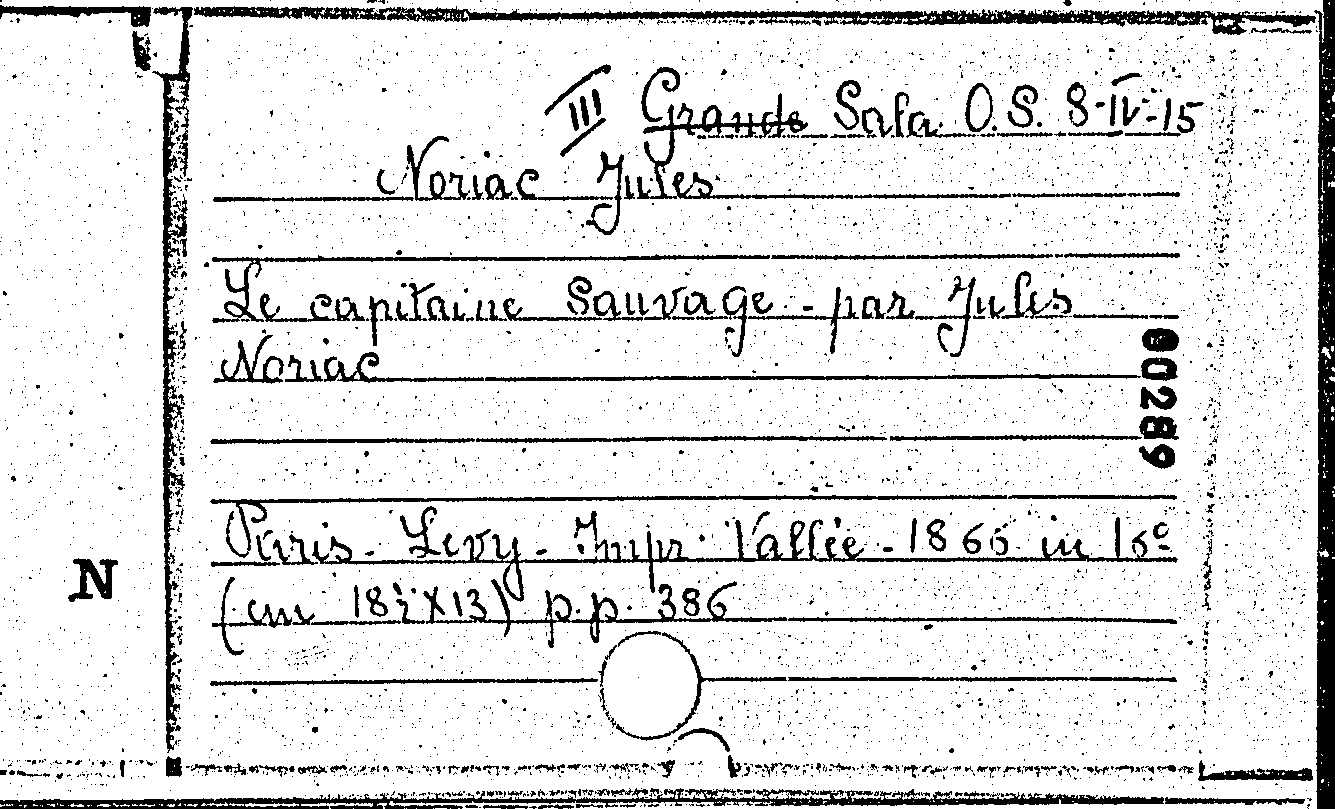 III Grande Sala O. S. 8-IV-15
Noriac Jules
Le capitaine Sauvage - par Jules
Noriac
00289
Paris - Levy - Impr. Vallée - 1866 in 16º
N
(cm 18½ X 13) p.p. 386